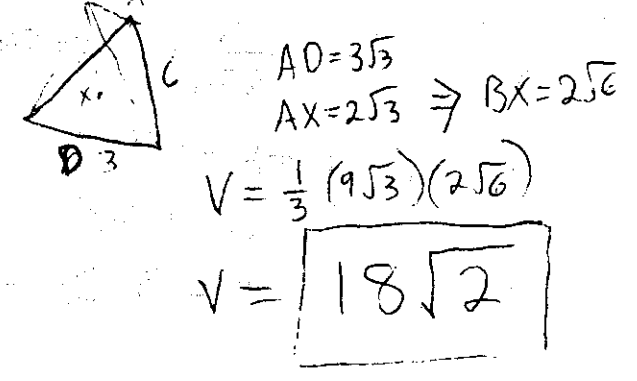 6
X.
D 3
AD=3√3
AX=2√3 ⇒ BX=2√6
V = 1/3 (9√3)(2√6)
V = 18√2